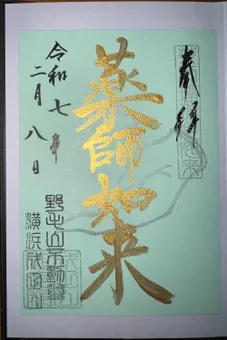 奉拝
薬師如来
令和七年
二月八日
野毛山不動尊
横浜成田山